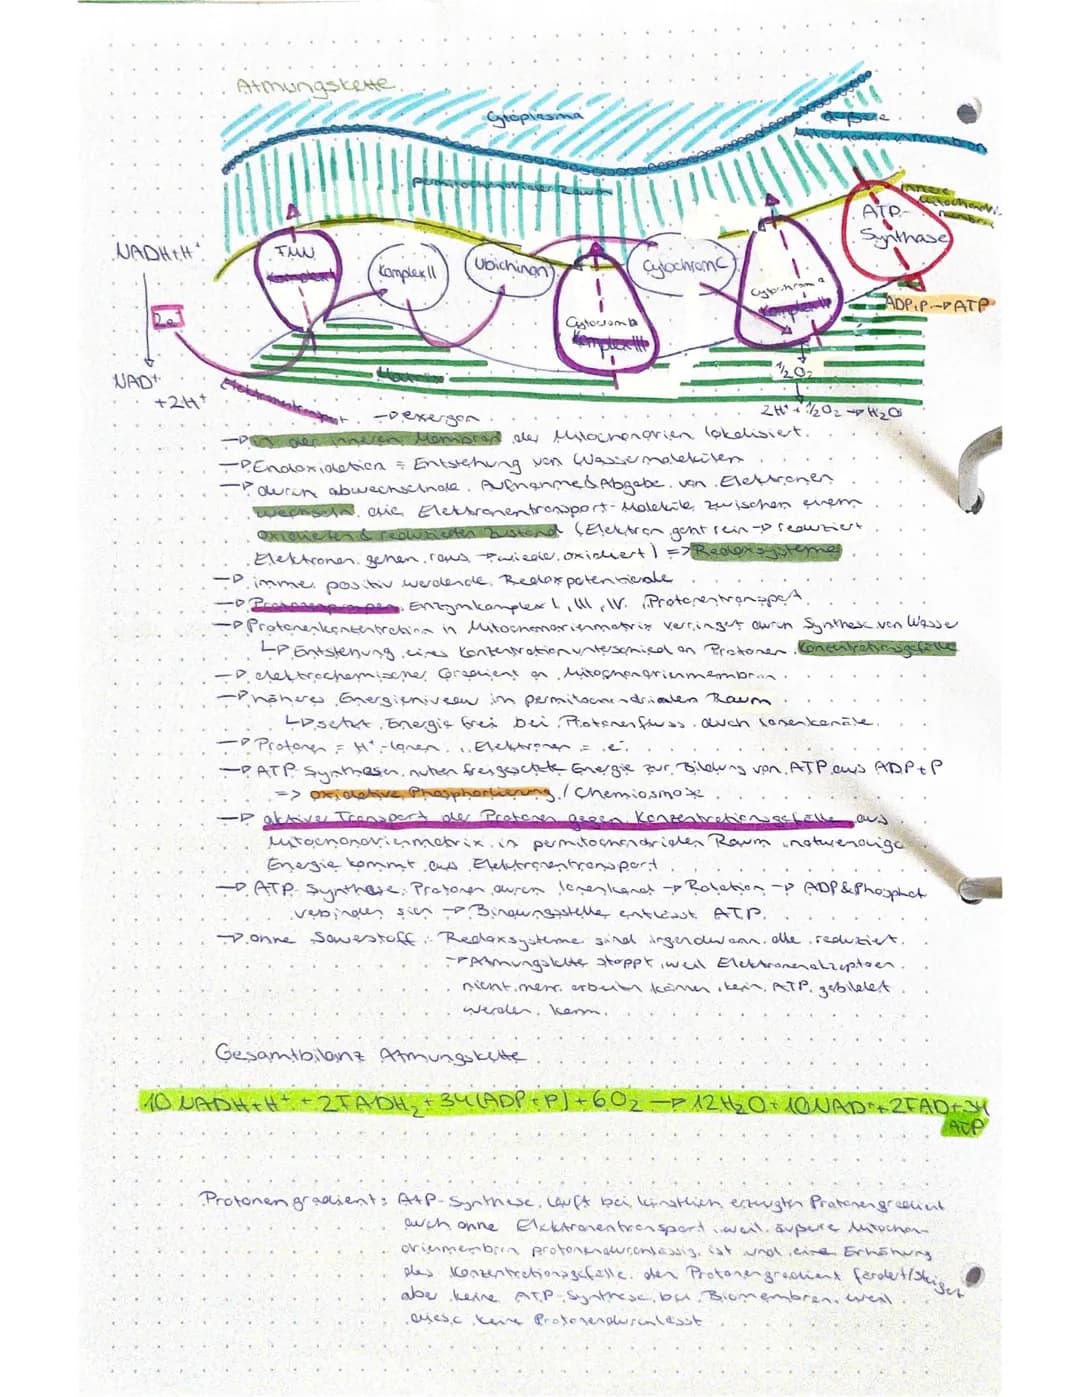 Atmungskette
Cytoplasma
äußere
Mitochondrienmembran
perimitochondrialer Raum
innere
Mitochondri-
membran
ATP-
Synthase
NADH+H⁺
FMN
Komplex I
Komplex II
Ubichinon
Cytochrom C
Cytochrom b
Komplex III
Cytochrom a
2e⁻
ADP+P→ATP
½O₂
Matrix
NAD⁺
+2H⁺
Elektronentransport → exergon
2H⁺ + ½O₂ → H₂O
→ in der inneren Membran der Mitochondrien lokalisiert.
→ Endoxidation = Entstehung von Wassermolekülen
→ durch abwechselnde Aufnahme & Abgabe von Elektronen
wechseln die Elektronentransport-Moleküle zwischen einem
oxidierten & reduzierten Zustand (Elektron geht rein → reduziert
Elektronen gehen raus → wieder oxidiert) => Redoxsysteme
→ immer positiv werdende Redoxpotentiale
→ Protonenpumpen Enzymkomplex I, III, IV. Protonentransport
→ Protonenkonzentration in Mitochondrienmatrix verringert durch Synthese von Wasser
↳ Entstehung eines Konzentrationsunterschied an Protonen Konzentrationsgefälle
→ elektrochemischer Gradient an Mitochondrienmembran.
→ höheres Energieniveau im perimitochondrialen Raum
↳ setzt Energie frei bei Protonenfluss durch Ionenkanäle.
→ Protonen = H⁺-Ionen, Elektronen = e⁻.
→ ATP Synthasen nutzen freigesetzte Energie zur Bildung von ATP aus ADP+P
=> oxidative Phosphorlierung / Chemiosmose
→ aktiver Transport der Protonen gegen Konzentrationsgefälle aus
Mitochondrienmatrix in perimitochondrialen Raum, notwendige
Energie kommt aus Elektronentransport
→ ATP-Synthese: Protonen durch Ionenkanal → Rotation → ADP & Phosphat
verbinden sich → Bindungsstelle entlässt ATP.
→ ohne Sauerstoff: Redoxsysteme sind irgendwann alle reduziert.
→ Atmungskette stoppt, weil Elektronenakzeptoren
nicht mehr arbeiten können, kein ATP gebildet
werden kann.
Gesamtbilanz Atmungskette
10 NADH+H⁺ + 2FADH₂ + 34(ADP+P) + 6O₂ → 12H₂O + 10NAD⁺ + 2FAD + 34
ATP
Protonengradient: ATP-Synthese läuft bei künstlich erzeugten Protonengradient
auch ohne Elektronentransport, weil äußere Mitochon-
drienmembran protonendurchlässig ist und eine Erhöhung
des Konzentrationsgefälle den Protonengradient fördert/steigert
aber keine ATP-Synthese bei Biomembran, weil
diese keine Protonen durchlässt